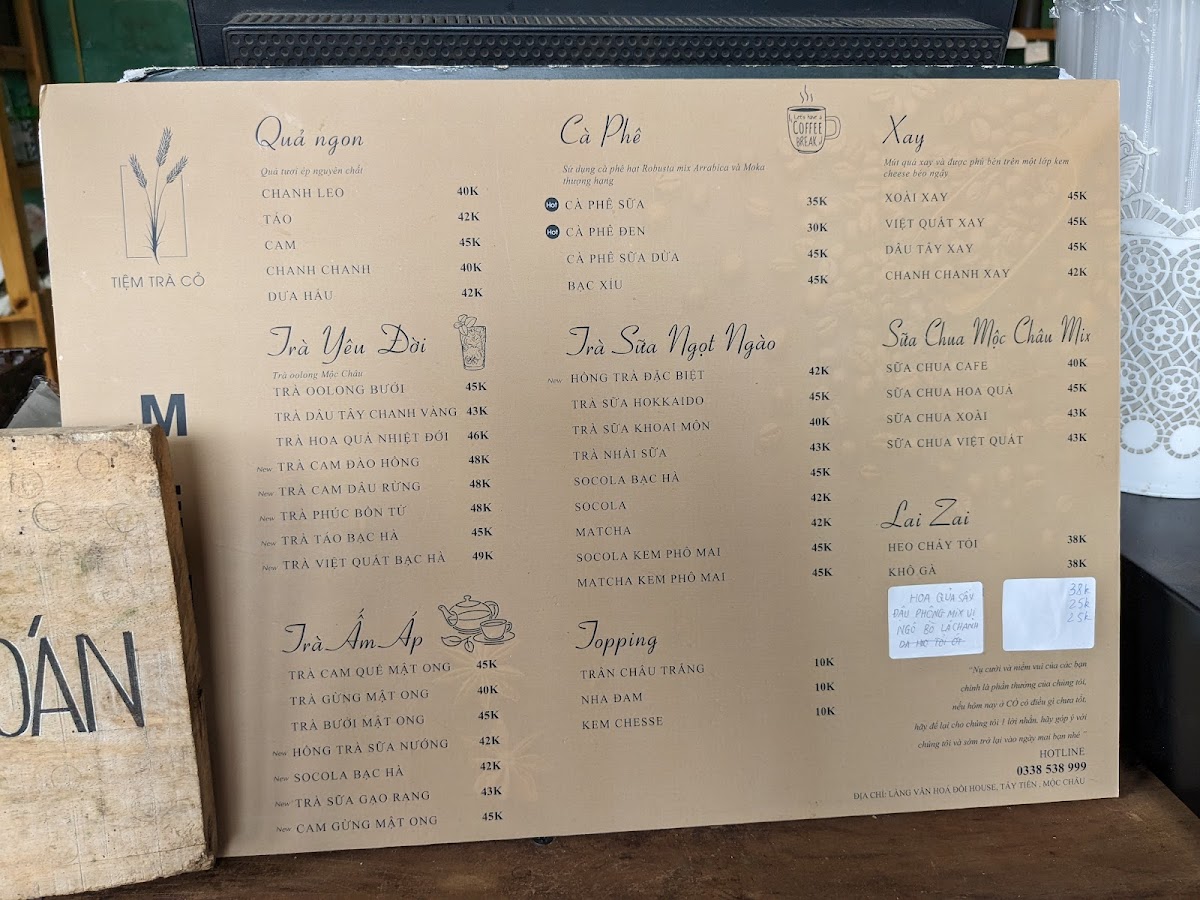 TIỆM TRÀ CỎ
M
OÁN
Quả ngon
Quả tươi ép nguyên chất
CHANH LEO 40K
TÁO 42K
CAM 45K
CHANH CHANH 40K
DƯA HẤU 42K
Trà Yêu Đời
Trà oolong Mộc Châu
TRÀ OOLONG BƯỞI 45K
TRÀ DÂU TÂY CHANH VÀNG 43K
TRÀ HOA QUẢ NHIỆT ĐỚI 46K
New TRÀ CAM ĐÀO HỒNG 48K
New TRÀ CAM DÂU RỪNG 48K
New TRÀ PHÚC BỒN TỬ 48K
New TRÀ TÁO BẠC HÀ 45K
New TRÀ VIỆT QUẤT BẠC HÀ 49K
Trà Ấm Áp
TRÀ CAM QUẾ MẬT ONG 45K
TRÀ GỪNG MẬT ONG 40K
TRÀ BƯỞI MẬT ONG 45K
New HỒNG TRÀ SỮA NƯỚNG 42K
New SOCOLA BẠC HÀ 42K
New TRÀ SỮA GẠO RANG 43K
New CAM GỪNG MẬT ONG 45K
Cà Phê
Let's have a
COFFEE
BREAK
Sử dụng cà phê hạt Robusta mix Arrabica và Moka
thượng hạng
Hot CÀ PHÊ SỮA 35K
Hot CÀ PHÊ ĐEN 30K
CÀ PHÊ SỮA DỪA 45K
BẠC XỈU 45K
Trà Sữa Ngọt Ngào
New HỒNG TRÀ ĐẶC BIỆT 42K
TRÀ SỮA HOKKAIDO 45K
TRÀ SỮA KHOAI MÔN 40K
TRÀ NHÀI SỮA 43K
SOCOLA BẠC HÀ 45K
SOCOLA 42K
MATCHA 42K
SOCOLA KEM PHÔ MAI 45K
MATCHA KEM PHÔ MAI 45K
Topping
TRÂN CHÂU TRẮNG 10K
NHA ĐAM 10K
KEM CHESSE 10K
Xay
Mút quả xay và được phủ bên trên một lớp kem
cheese béo ngậy
XOÀI XAY 45K
VIỆT QUẤT XAY 45K
DÂU TÂY XAY 45K
CHANH CHANH XAY 42K
Sữa Chua Mộc Châu Mix
SỮA CHUA CAFE 40K
SỮA CHUA HOA QUẢ 45K
SỮA CHUA XOÀI 43K
SỮA CHUA VIỆT QUẤT 43K
Lai Zai
HEO CHÁY TỎI 38K
KHÔ GÀ 38K
HOA QUẢ SẤY 38k
ĐẬU PHỘNG MIX VỊ 25k
NGÔ BƠ LÁ CHANH 25k
"Nụ cười và niềm vui của các bạn
chính là phần thưởng của chúng tôi,
nếu hôm nay ở CỎ có điều gì chưa tốt,
hãy để lại cho chúng tôi 1 lời nhắn, hãy góp ý với
chúng tôi và sớm trở lại vào ngày mai bạn nhé "
HOTLINE
0338 538 999
ĐỊA CHỈ: LÀNG VĂN HOÁ ĐÔI HOUSE, TÂY TIẾN , MỘC CHÂU